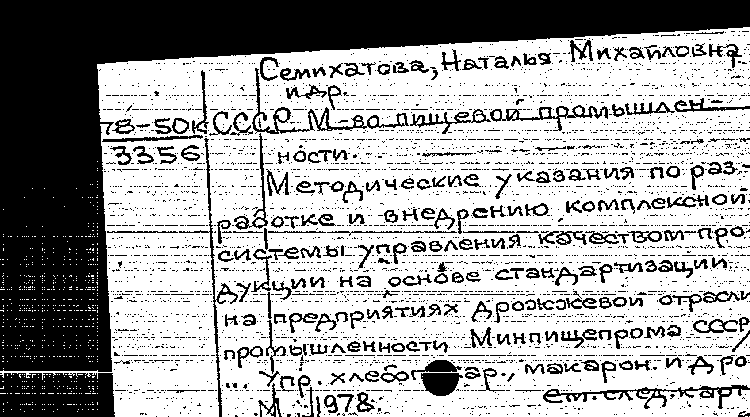 Семихатова, Наталья Михайловна
и др.
78-50к СССР М-во пищевой промышлен-
3356 ности.
Методические указания по раз-
работке и внедрению комплексной
системы управления качеством про-
дукции на основе стандартизации
на предприятиях дрожжевой отрасли
промышленности Минпищепрома СССР
... Упр. хлебоп кар., макарон. и дро
М., 1978. см. след. карт